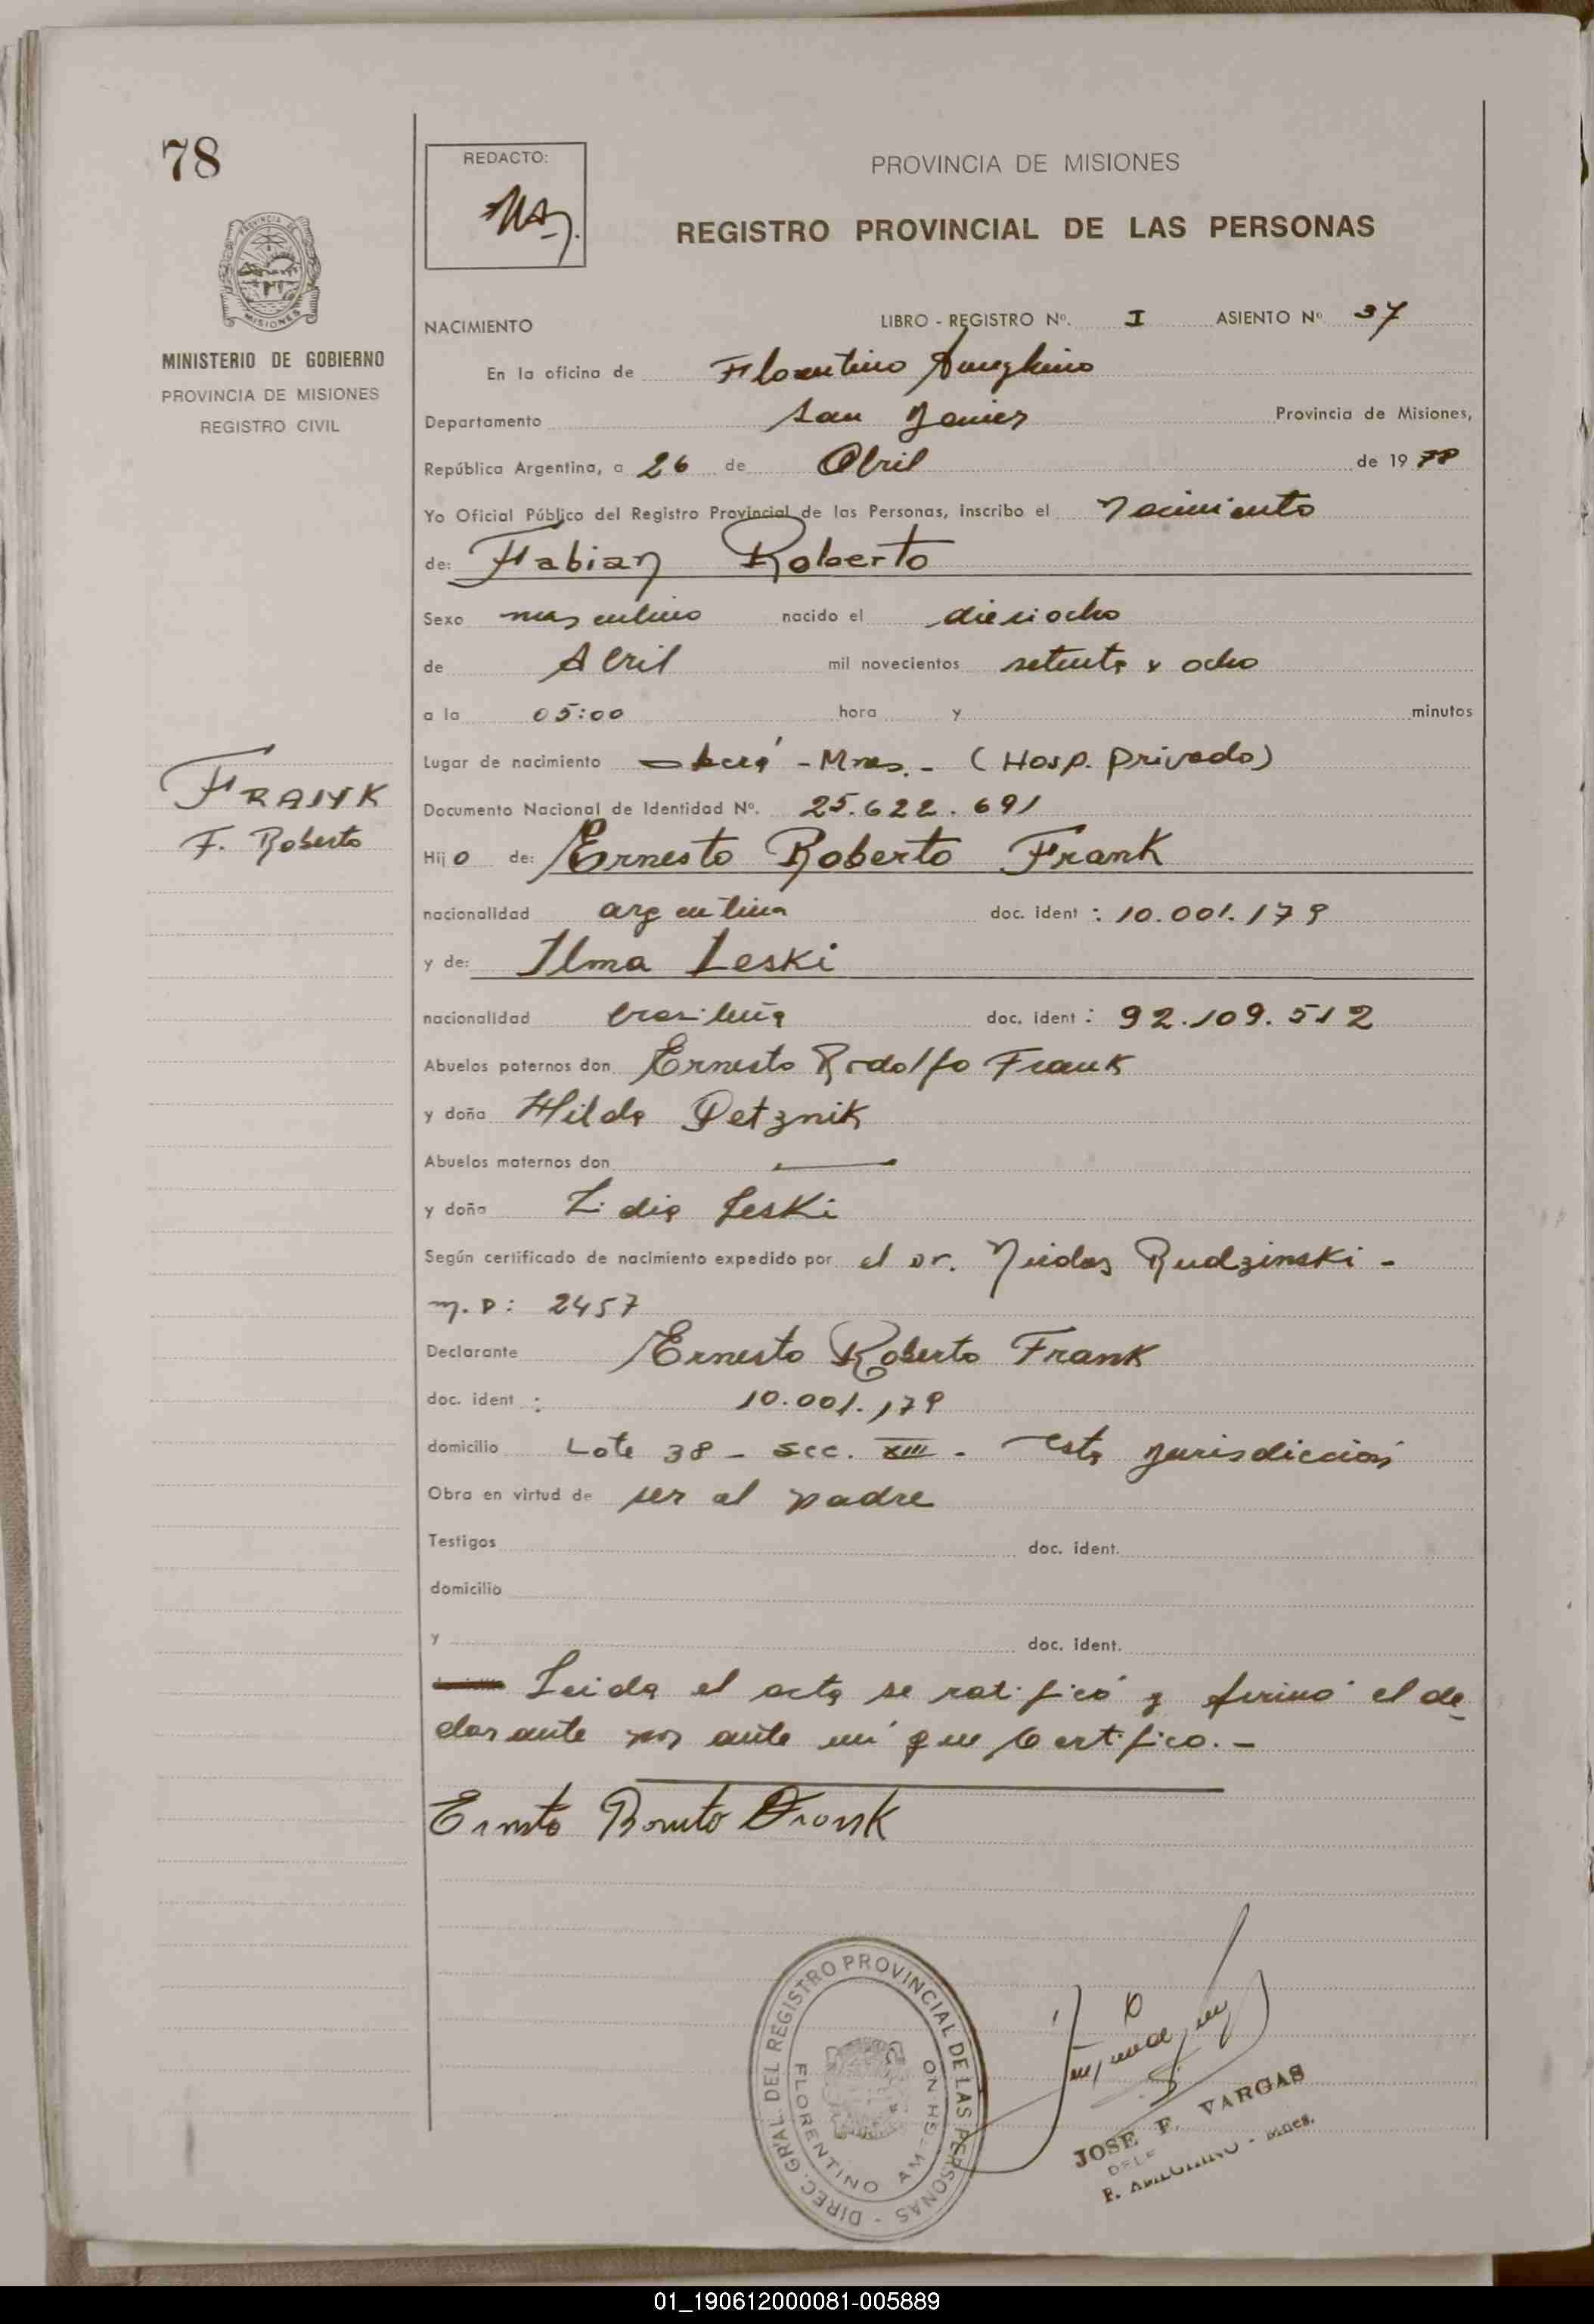 78
REDACTO:
PROVINCIA DE MISIONES
REGISTRO PROVINCIAL DE LAS PERSONAS
PROVINCIA DE
MISIONES
MINISTERIO DE GOBIERNO
PROVINCIA DE MISIONES
REGISTRO CIVIL
NACIMIENTO LIBRO - REGISTRO Nº. I ASIENTO Nº 37
En la oficina de Florentino Ameghino
Departamento San Javier Provincia de Misiones,
República Argentina, a 26 de Abril de 1978
Yo Oficial Público del Registro Provincial de las Personas, inscribo el Nacimiento
de: Fabian Roberto
Sexo masculino nacido el dieciocho
de Abril mil novecientos setenta y ocho
a la 05:00 hora y minutos
Lugar de nacimiento Oberá - Mnes. - (Hosp. Privado)
FRANK
F. Roberto
Documento Nacional de Identidad Nº. 25.622.691
Hijo de: Ernesto Roberto Frank
nacionalidad argentina doc. ident : 10.001.179
y de: Ilma Leski
nacionalidad brasileña doc. ident : 92.109.512
Abuelos paternos don Ernesto Rodolfo Frank
y doña Hilda Petznik
Abuelos maternos don
y doña Lidia Leski
Según certificado de nacimiento expedido por el Dr. Nicolas Rudzinski -
M.P: 2457
Declarante Ernesto Roberto Frank
doc. ident : 10.001.179
domicilio Lote 38 - Secc. XIII - esta jurisdicción
Obra en virtud de ser el padre
Testigos doc. ident.
domicilio
y doc. ident.
Leida el acta se ratificó y firmó el de
clarante por ante mí que Certifico. -
Ernesto Roberto Frank
DIREC. GRAL. DEL REGISTRO PROVINCIAL DE LAS PERSONAS -
FLORENTINO AMEGHINO
JOSE F. VARGAS
F. AMEGHINO - Mnes.
01_190612000081-005889